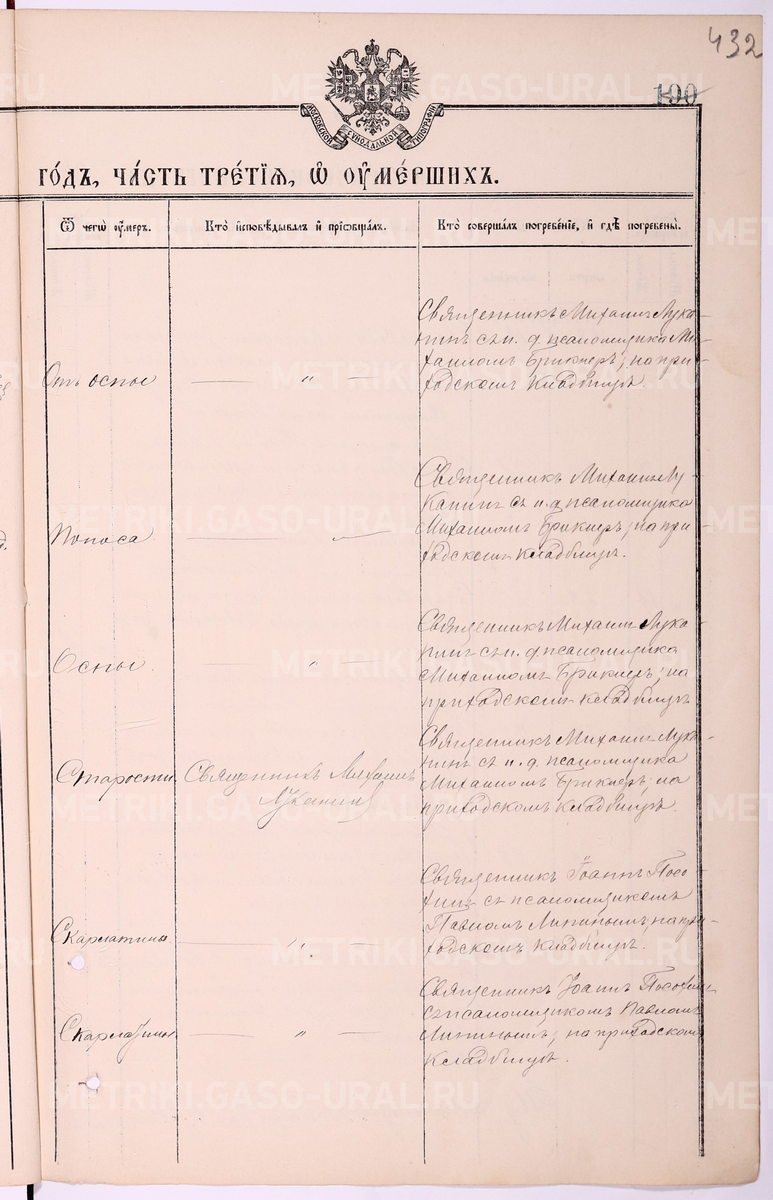 432
190
МОСКОВСКОЙ СѴНОДАЛЬНОЙ ТИПОГРАФІИ
ГО́ДЪ, ЧА́СТЬ ТРЕ́ТІѦ, Ѡ҆ ОУ҆МЕ́РШИХЪ.
Ѿ чегѡ̀ оу҆́мер.
Кто̀ и҆сповѣ́дывалъ и҆ прїѡбща́лъ.
Кто̀ соверша́лъ погребе́нїе, и҆ гдѣ̀ погребены̀.
Отъ оспы
— " —
Священникъ Михаилъ Лука-
нинъ съ и. д. псаломщика Ми-
хаиломъ Брикнеръ; на при-
ходскомъ кладбищѣ
Поноса
— " —
Священникъ Михаилъ Лу-
канинъ съ и. д. псаломщика
Михаиломъ Брикнеръ, на при-
ходскомъ кладбищѣ.
Оспы
— " —
Священникъ Михаилъ Лука-
нинъ съ и. д. псаломщика
Михаиломъ Брикнеръ; на
приходскомъ кладбищѣ
Старости
Священникъ Михаилъ
Луканинъ
Священникъ Михаилъ Лука-
нинъ съ и. д. псаломщика
Михаиломъ Брикнеръ; на
приходскомъ кладбищѣ.
Скарлатины
— " —
Священникъ Іоаннъ
съ псаломщикомъ
Павломъ Липинымъ, на при-
ходскомъ кладбищѣ.
Скарлатины
— " —
Священникъ Іоаннъ
съ псаломщикомъ Павломъ
Липинымъ; на приходскомъ
кладбищѣ.
METRIKI.GASO-URAL.RU